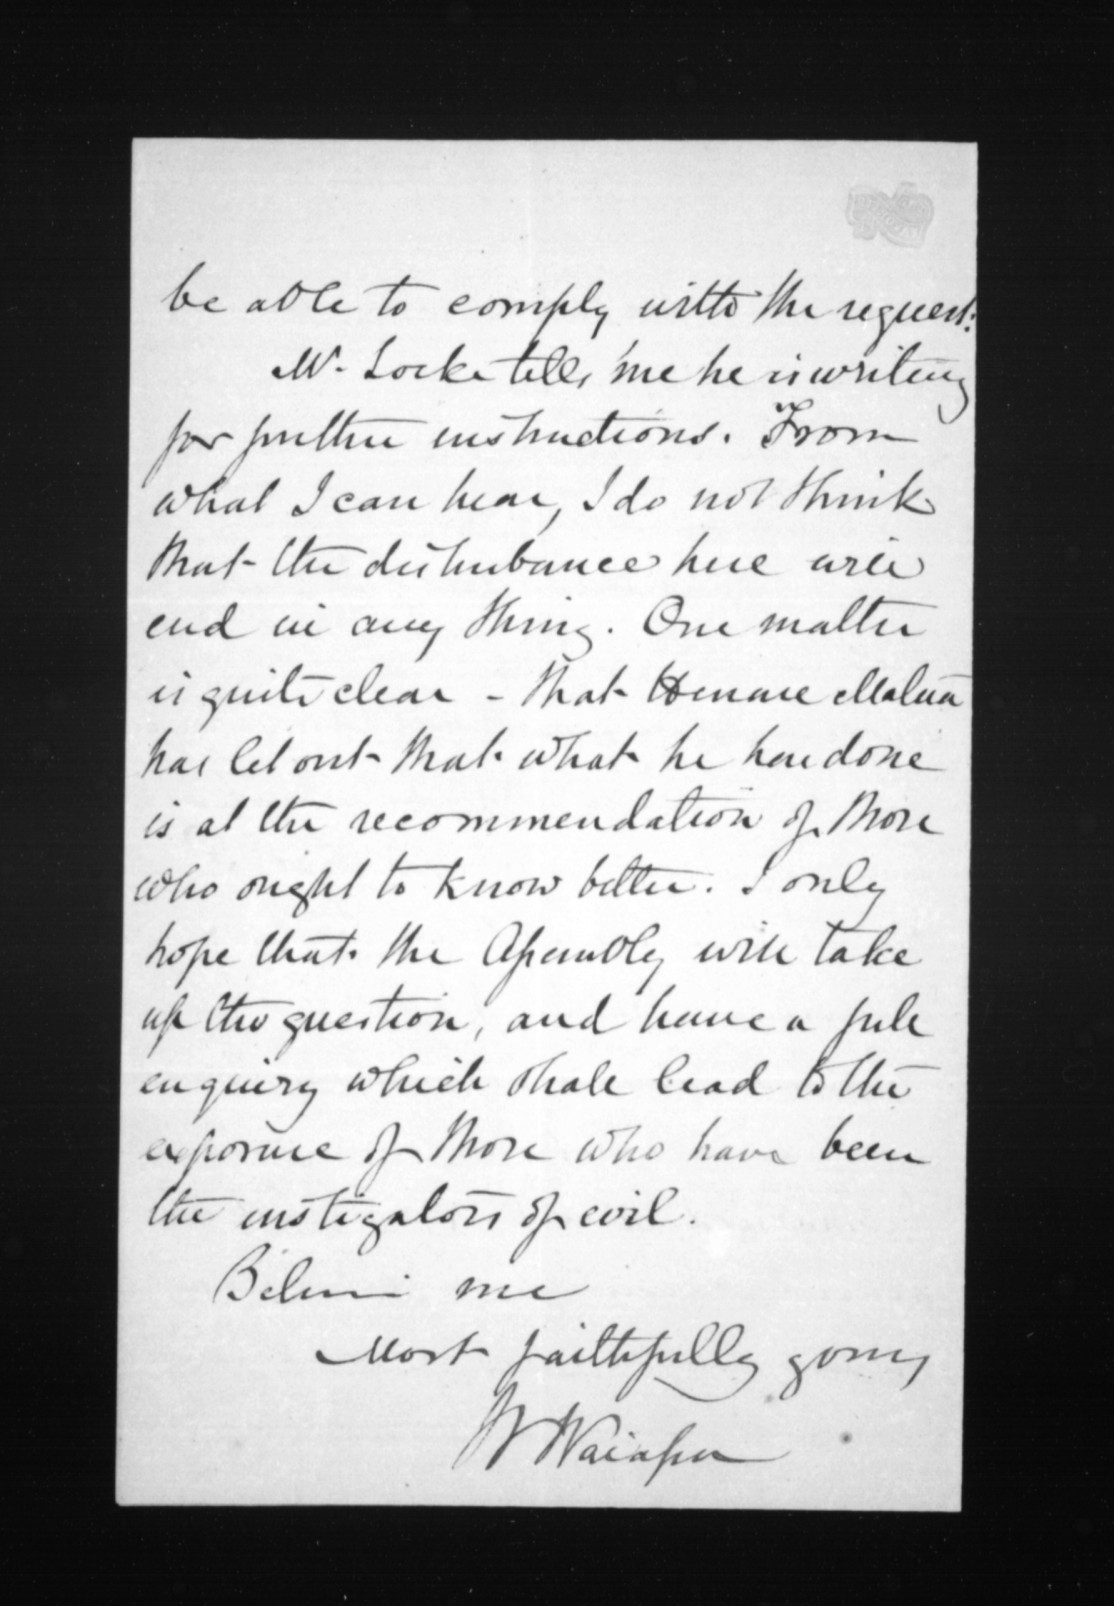 be able to comply with the request.
Mr. Locke tells me he is writing
for further instructions. From
what I can hear, I do not think
that the disturbance here will
end in any thing. One matter
is quite clear - that Henare Matua
has let out that what he has done
is at the recommendation of those
who ought to know better. I only
hope that the Assembly will take
up the question, and have a full
enquiry which shall lead to the
exposure of those who have been
the instigators of evil.
Believe me
Most faithfully yours
W Waiapu